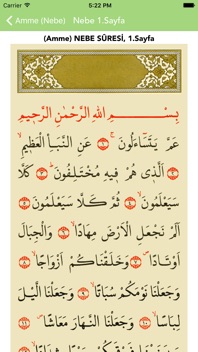 Carrier 5:22 PM
Amme (Nebe) Nebe 1.Sayfa
(Amme) NEBE SÛRESİ, 1.Sayfa
بِسْمِ اللهِ الرَّحْمٰنِ الرَّحِيمِ
عَمَّ يَتَسَٓاءَلُونَۚ ﴿١﴾ عَنِ النَّبَأِ الْعَظِيمِۙ
﴿٢﴾ اَلَّذِي هُمْ فِيهِ مُخْتَلِفُونَۜ ﴿٣﴾ كَلَّا
سَيَعْلَمُونَۙ ﴿٤﴾ ثُمَّ كَلَّا سَيَعْلَمُونَ ﴿٥﴾
اَلَمْ نَجْعَلِ الْاَرْضَ مِهَادًاۙ ﴿٦﴾ وَالْجِبَالَ
اَوْتَادًاۖ ﴿٧﴾ وَخَلَقْنَاكُمْ اَزْوَاجًاۙ ﴿٨﴾
وَجَعَلْنَا نَوْمَكُمْ سُبَاتًاۙ ﴿٩﴾ وَجَعَلْنَا الَّيْلَ
لِبَاسًاۙ ﴿١٠﴾ وَجَعَلْنَا النَّهَارَ مَعَاشًاۖ ﴿١١﴾